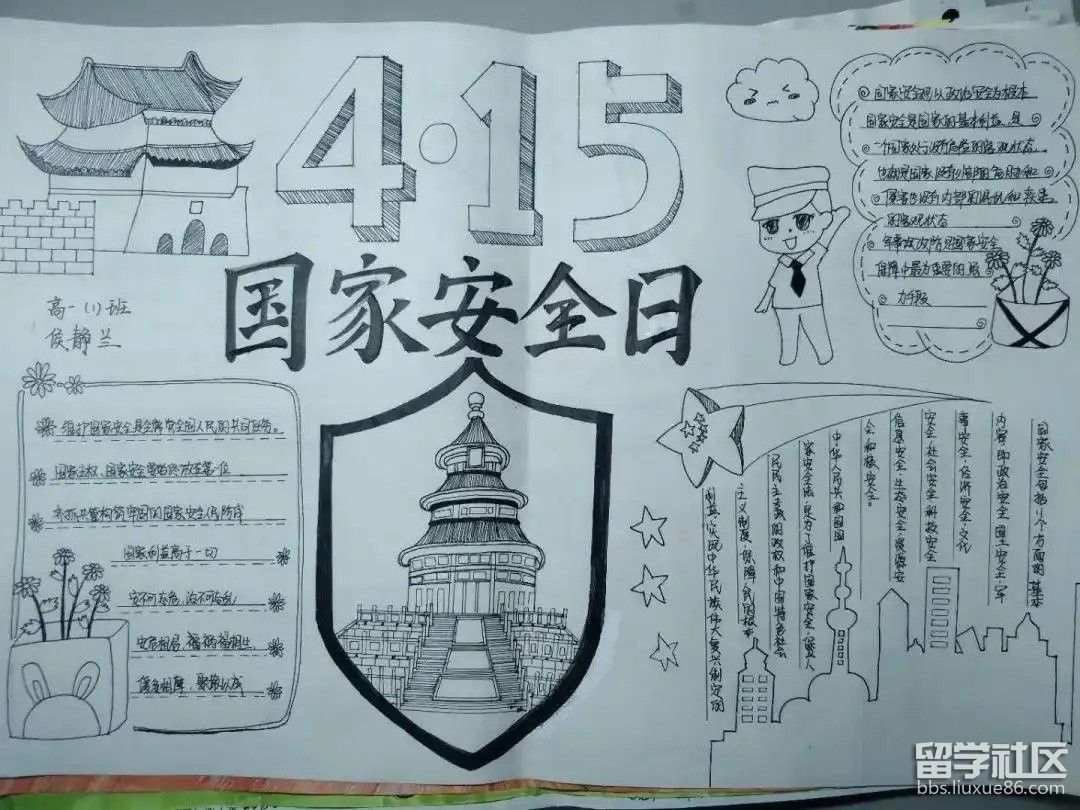 4·15
国家安全日
高一(1)班
侯静兰
国家安全观以政治安全为根本
国家安全是国家的基本利益,是
一个国家处于没有危险的客观状态,
也就是国家没有外部的威胁和
侵害也没有内部的混乱和疾患
的客观状态
国家安全
保障中最为重要的
维护国家安全是全国人民的共同任务。
国家主权、国家安全要始终放在第一位
国家安全人民防线
国家利益高于一切
安不可忘危,治不可忘乱
安危相易,祸福相生,
缓急相摩,聚散以成
国家安全包括11个方面的基本
内容,即政治安全·国土安全·军
事安全·经济安全·文化
安全·社会安全·科技安全
信息安全·生态安全·资源安
全和核安全。
中华人民共和国国
家安全法,是为了维护国家安全,保卫人
民民主专政的政权和中国特色社会
主义制度,保障人民的根本
利益,实现中华民族伟大复兴制定的
留学社区
bbs.liuxue86.com